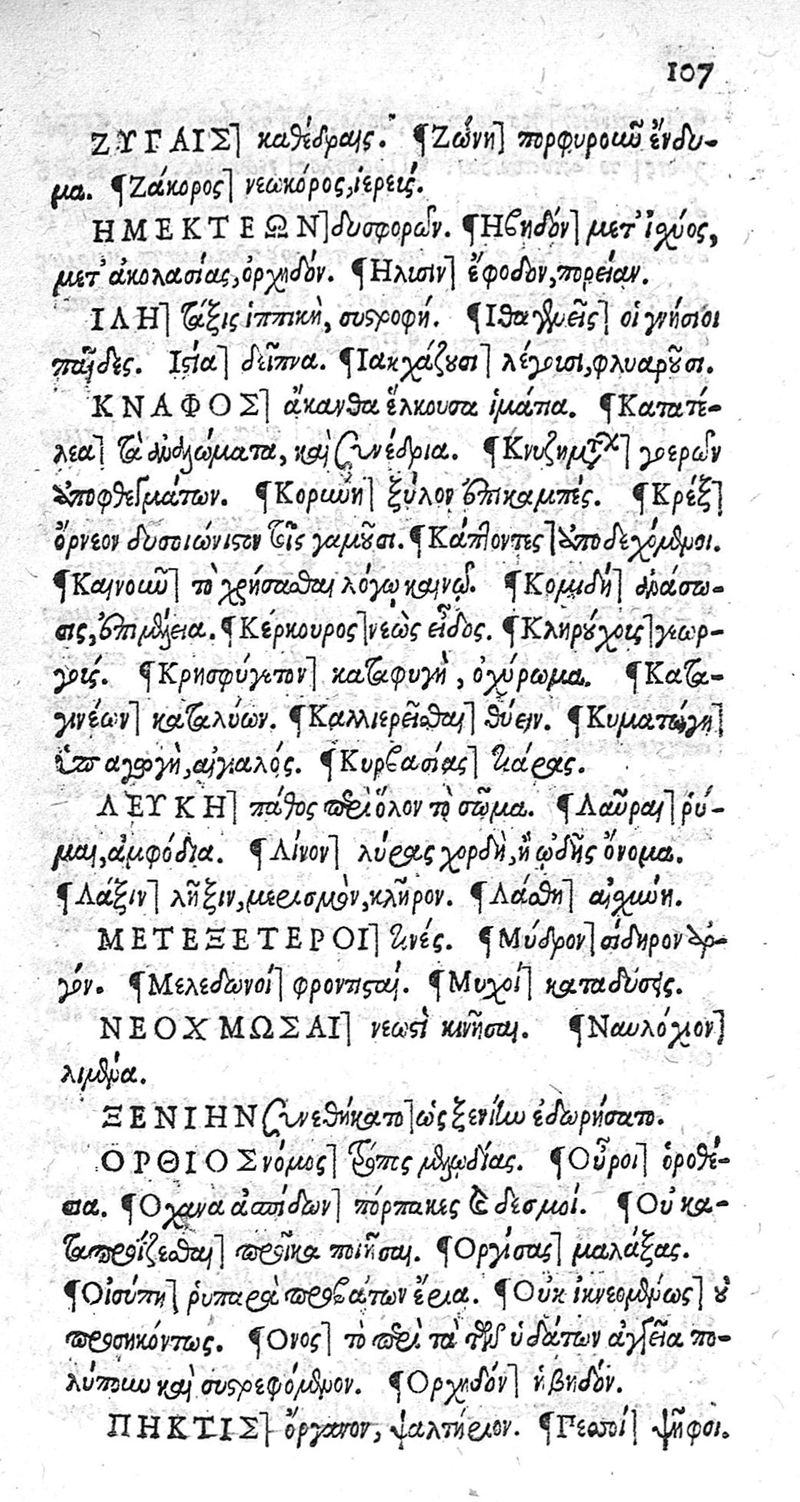 107
ΖΥΓΑΙΣ] καθέδραις. ¶Ζώνη] πορφυροῦν ἔνδυ-
μα. ¶Ζάκορος] νεωκόρος, ἱερεύς.
ΗΜΕΚΤΕΩΝ] δυσφορῶν. ¶Ηβηδόν] μετ' ἰχύος,
μετ' ἀκολασίας, ὀρχηδόν. ¶Ηλισιν] ἔφοδον, πορείαν.
ΙΛΗ] τάξις ἱππικὴ, συστροφή. ¶Ιθαγενεῖς] οἱ γνήσιοι
παῖδες. Ιστία] δεῖπνα. ¶Ιακχάζουσι] λέγουσι, φλυαροῦσι.
ΚΝΑΦΟΣ] ἄκανθα ἕλκουσα ἱμάτια. ¶Κατατέ-
λεα] τὰ ἀθροίσματα, καὶ συνέδρια. ¶Κνυζημάτων] γοερῶν
ὑποφθεγμάτων. ¶Κορώνη] ξύλον ἐπικαμπές. ¶Κρέξ]
ὄρνεον δυσοιώνιστον τοῖς γαμοῦσι. ¶Κάπτοντες] ὑποδεχόμενοι.
¶Καινοῦν] τὸ χρήσασθαι λόγῳ καινῷ. ¶Κομιδή] ἀνάσω-
σις, ἐπιμέλεια. ¶Κέρκουρος] νεὼς εἶδος. ¶Κληρούχοις] γεωρ-
γοῖς. ¶Κρησφύγετον] καταφυγὴ, ὀχύρωμα. ¶Κατα-
γινέων] καταλύων. ¶Καλλιερεῖσθαι] θύειν. ¶Κυματώγη]
ὑπαγωγὴ, αἰγιαλός. ¶Κυρβασίας] τιάρας.
ΛΕΥΚΗ] πάθος περὶ ὅλον τὸ σῶμα. ¶Λαῦραι] ῥύ-
μαι, ἀμφόδια. ¶Λίνον] λύρας χορδὴ, ἢ ᾠδῆς ὄνομα.
¶Λάξιν] λῆξιν, μερισμὸν, κλῆρον. ¶Λάσθη] αἰσχύνη.
ΜΕΤΕΞΕΤΕΡΟΙ] τινές. ¶Μύδρον] σίδηρον ἀρ-
γόν. ¶Μελεδωνοί] φροντισταί. ¶Μυχοί] καταδύσεις.
ΝΕΟΧΜΩΣΑΙ] νεωστὶ κινῆσαι. ¶Ναυλόχιον]
λιμένα.
ΞΕΝΙΗΝ συνεθήκατο] ὡς ξενίαν ἐδωρήσατο.
ΟΡΘΙΟΣ νόμος] τρόπος μελῳδίας. ¶Οὖροι] ὁροθέ-
σια. ¶Οχανα ἀσπίδων] πόρπακες καὶ δεσμοί. ¶Οὐ κα-
ταπροΐζεσθαι] προῖκα ποιῆσαι. ¶Οργίσας] μαλάξας.
¶Οἰσύπη] ῥυπαρὰ προβάτων ἔρια. ¶Οὐκ ἱκνεομένως] οὐ
προσηκόντως. ¶Ονος] τὸ περὶ τὰ τῶν ὑδάτων ἀγγεῖα πο-
λύπουν καὶ συστρεφόμενον. ¶Ορχηδόν] ἡβηδόν.
ΠΗΚΤΙΣ] ὄργανον, ψαλτήριον. ¶Πεσσοί] ψῆφοι.